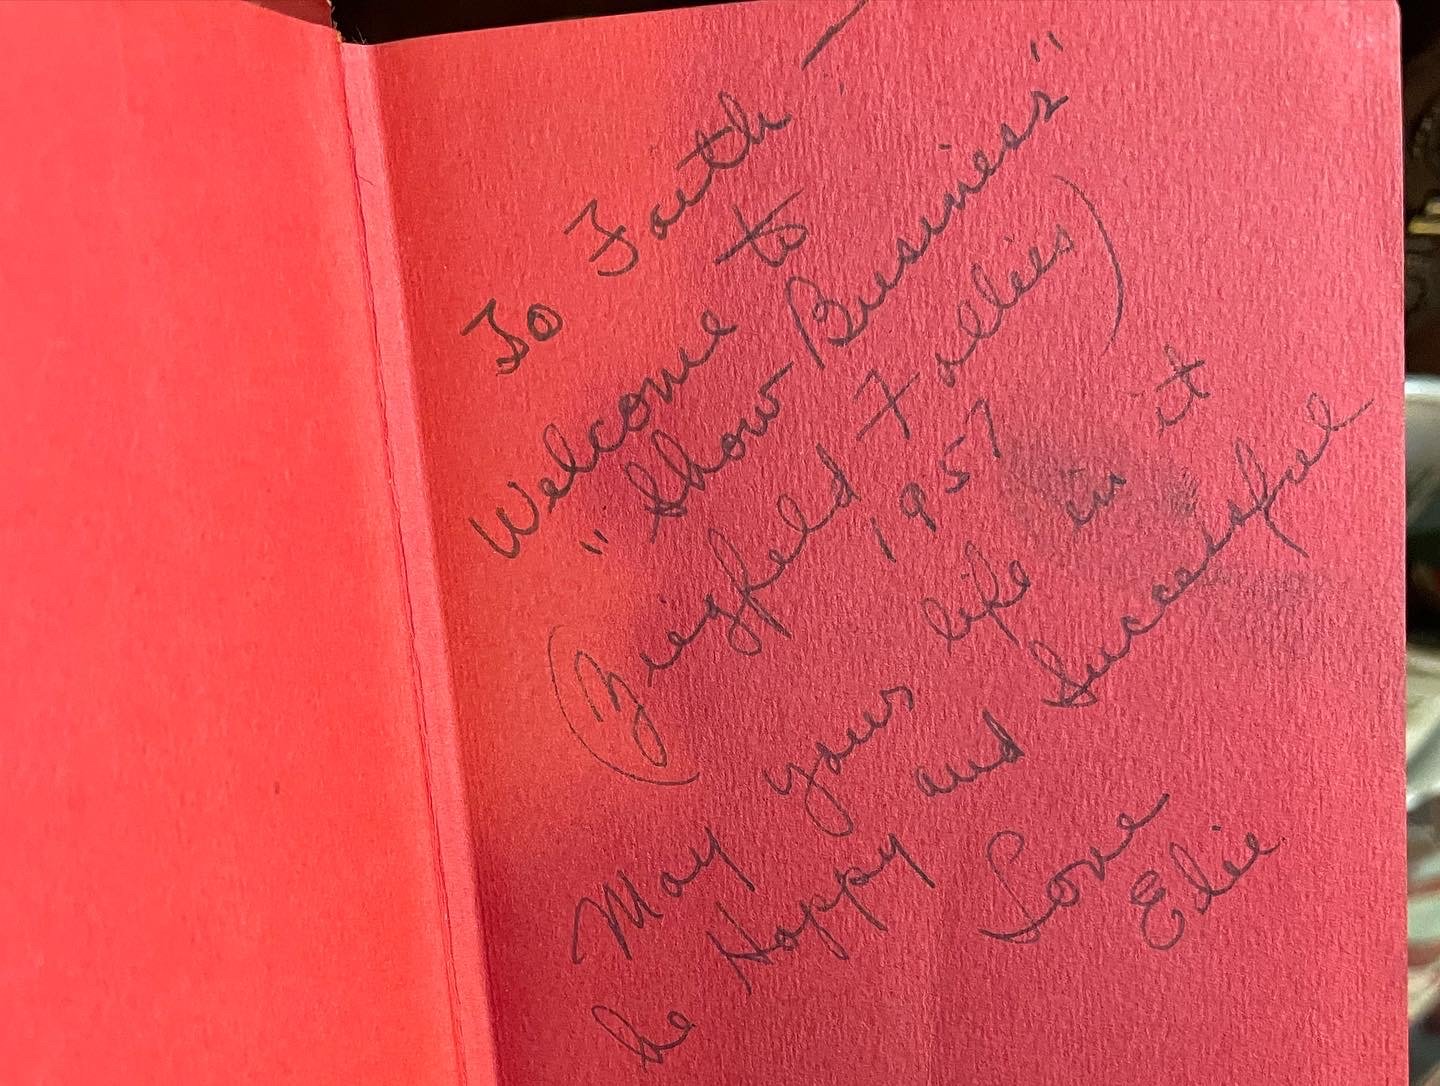 To Faith —
Welcome to
"Show Business"
(Ziegfeld Follies)
1957
May your life in it
be Happy and Successful
Love
Elsie